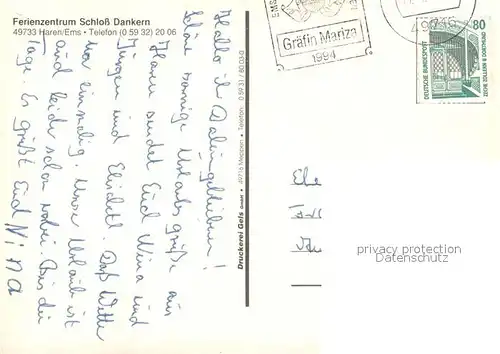 Ferienzentrum Schloß Dankern
49733 Haren/Ems • Telefon (0 59 32) 20 06
Hallo Ihr Daheimgebliebenen!
Schöne sonnige Urlaubsgrüße aus
Haren sendet Euch Nina und
Jürgen und Elisabeth. Das Wetter
war einmalig. Unser Urlaub ist
auch leider schon vorbei. Bis die
Tage. Es grüßt Euch
Nina
Druckerei Gels GmbH • 49716 Meppen • Telefon: 0 59 31 / 80 03-0
EMS
Gräfin Mariza
1994
49733
80
DEUTSCHE BUNDESPOST
ZECHE ZOLLERN II DORTMUND
privacy protection
Datenschutz